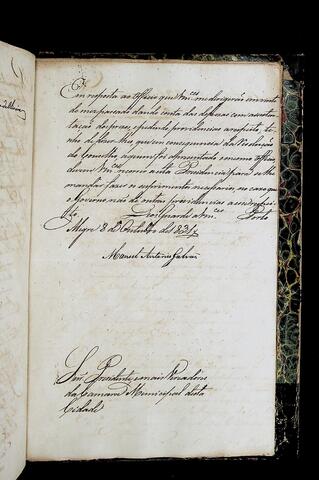 Em resposta ao Officio que Vm.ces me dirigirão em vinte
do mez passado dando conta das despezas com a susten-
tação dos prezos, e pedindo providencias a respeito, te-
nho de dizer-lhes que em consequencia da Resolução
do Conselho a quem foi apresentado o mesmo Officio
devem Vm.ces recorrer a esta Presidencia para se lhe
mandar fazer o suprimento necessario, no cazo que
o Governo não dê outras providencias a esse respei-
to. Deos Guarde a Vm.ces Porto
Alegre 8 de Outubro de 1831
Manoel Antonio Galvão
Senr.es Presidente, e mais Vereadores
da Camara Municipal desta
Cidade